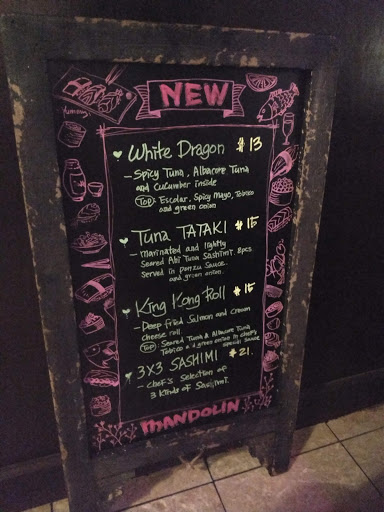 Yummy
NEW
White Dragon $13
- Spicy Tuna, Albacore Tuna
and Cucumber inside
TOP: Escolar, Spicy Mayo, Tobico
and green onion
Tuna TATAKI $15
- marinated and lightly
Seared Ahi Tuna Sashimi. 8pcs.
Served in ponzu sauce.
and green onion.
King Kong Roll $15
- Deep fried Salmon and Cream
cheese roll
TOP: Seared Tuna & Albacore Tuna
Tobico & green onion in chef's
special sauce
3X3 SASHIMI $21.
- chef's selection of
3 kinds of Sashimi.
MANDOLIN